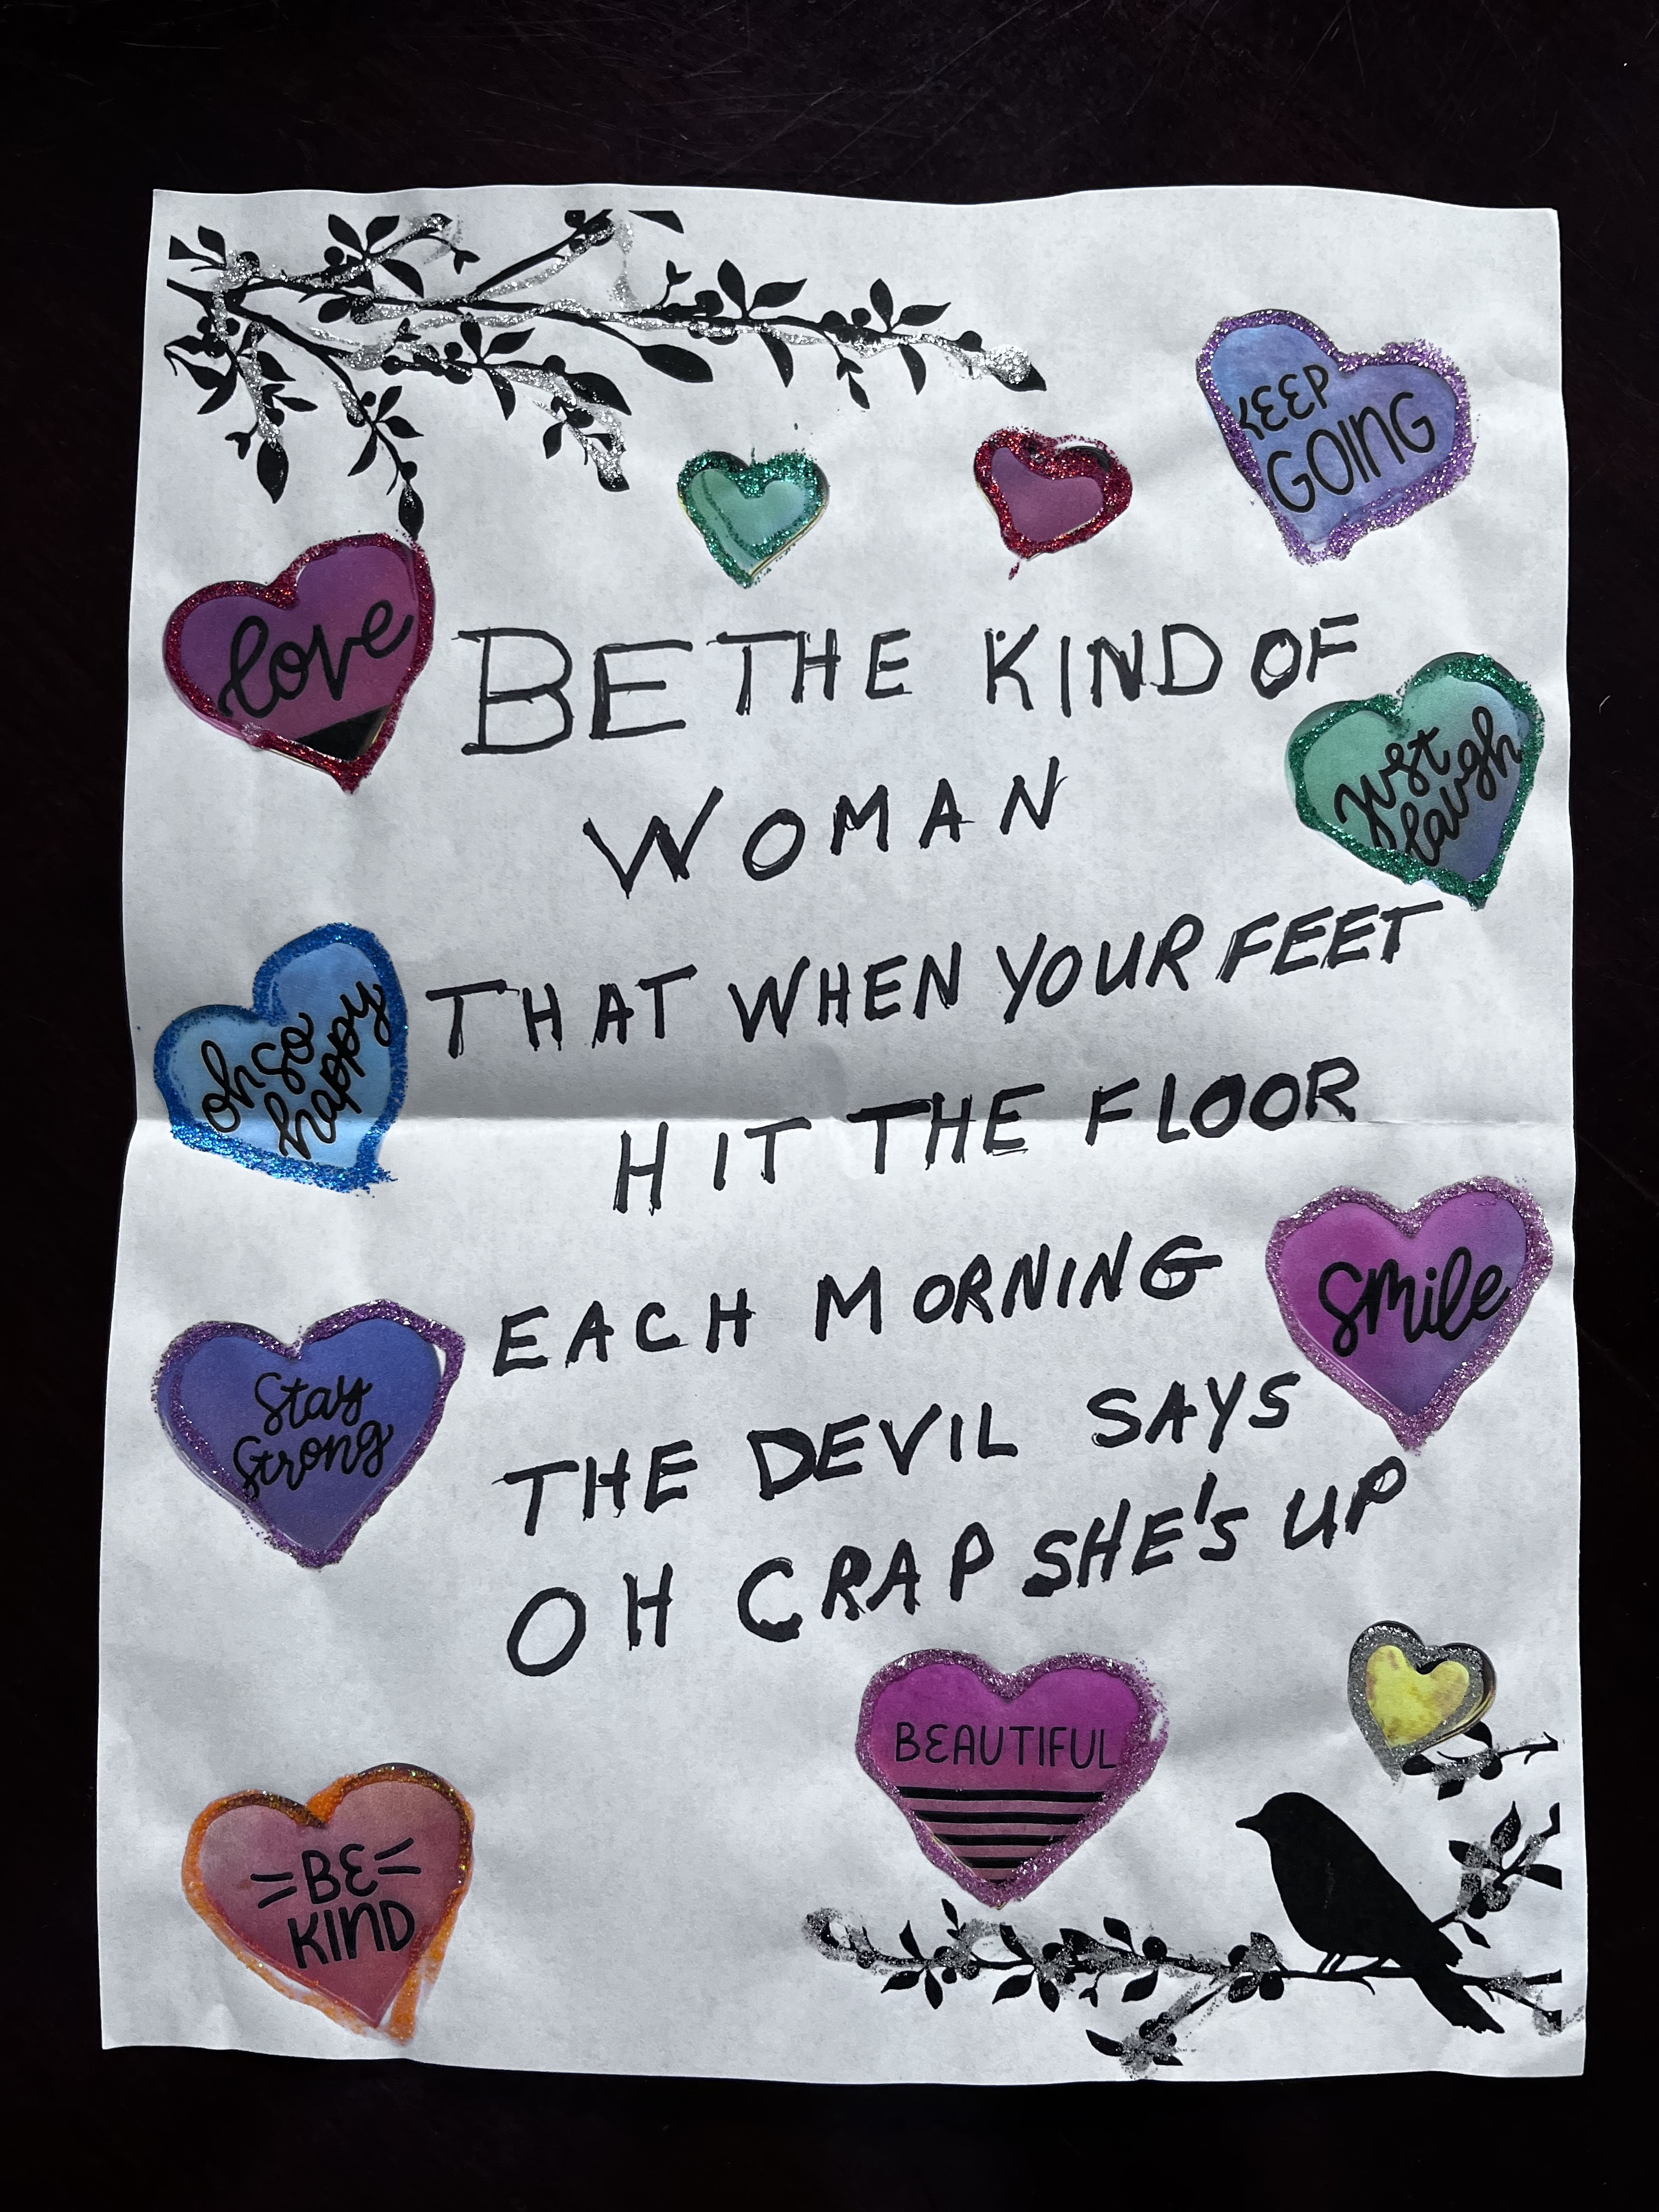 KEEP
GOING
love
BE THE KIND OF
just
laugh
WOMAN
THAT WHEN YOUR FEET
oh so
happy
HIT THE FLOOR
EACH MORNING
smile
Stay
Strong
THE DEVIL SAYS
OH CRAP SHE'S UP
BEAUTIFUL
BE
KIND